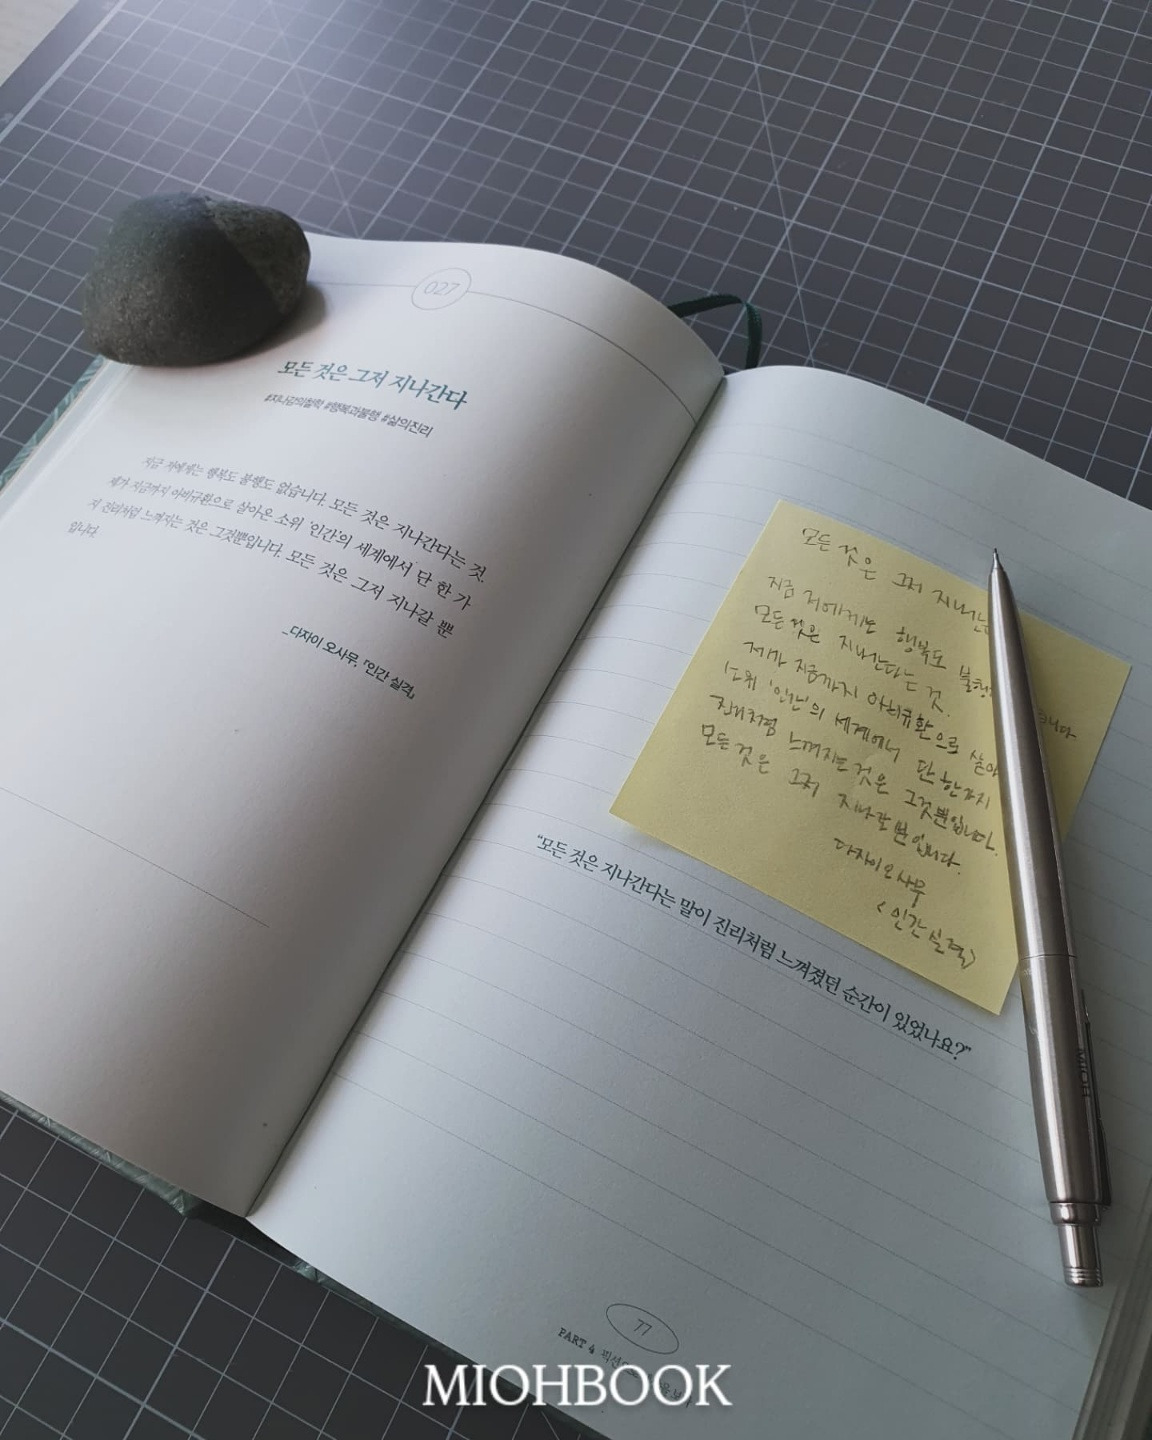 027
모든 것은 그저 지나간다
#지나감의철학 #행복과불행 #삶의진리
지금 저에게는 행복도 불행도 없습니다. 모든 것은 지나간다는 것.
제가 지금까지 아비규환으로 살아온 소위 '인간'의 세계에서 단 한 가
지 진리처럼 느껴지는 것은 그것뿐입니다. 모든 것은 그저 지나갈 뿐
입니다.
_다자이 오사무, 『인간 실격』
모든 것은 그저
지금 저에게도 행복도
모든 것은 지나간다는 것.
제가 지금까지 아비규환으로
소위 '인간'의 세계에서 단 한가지
진리처럼 느껴지는 것은 그것뿐입니다.
모든 것은 그저 지나갈 뿐입니다.
다자이 오사무
<인간 실격>
"모든 것은 지나간다는 말이 진리처럼 느껴졌던 순간이 있었나요?"
77
PART 4
MIOHBOOK